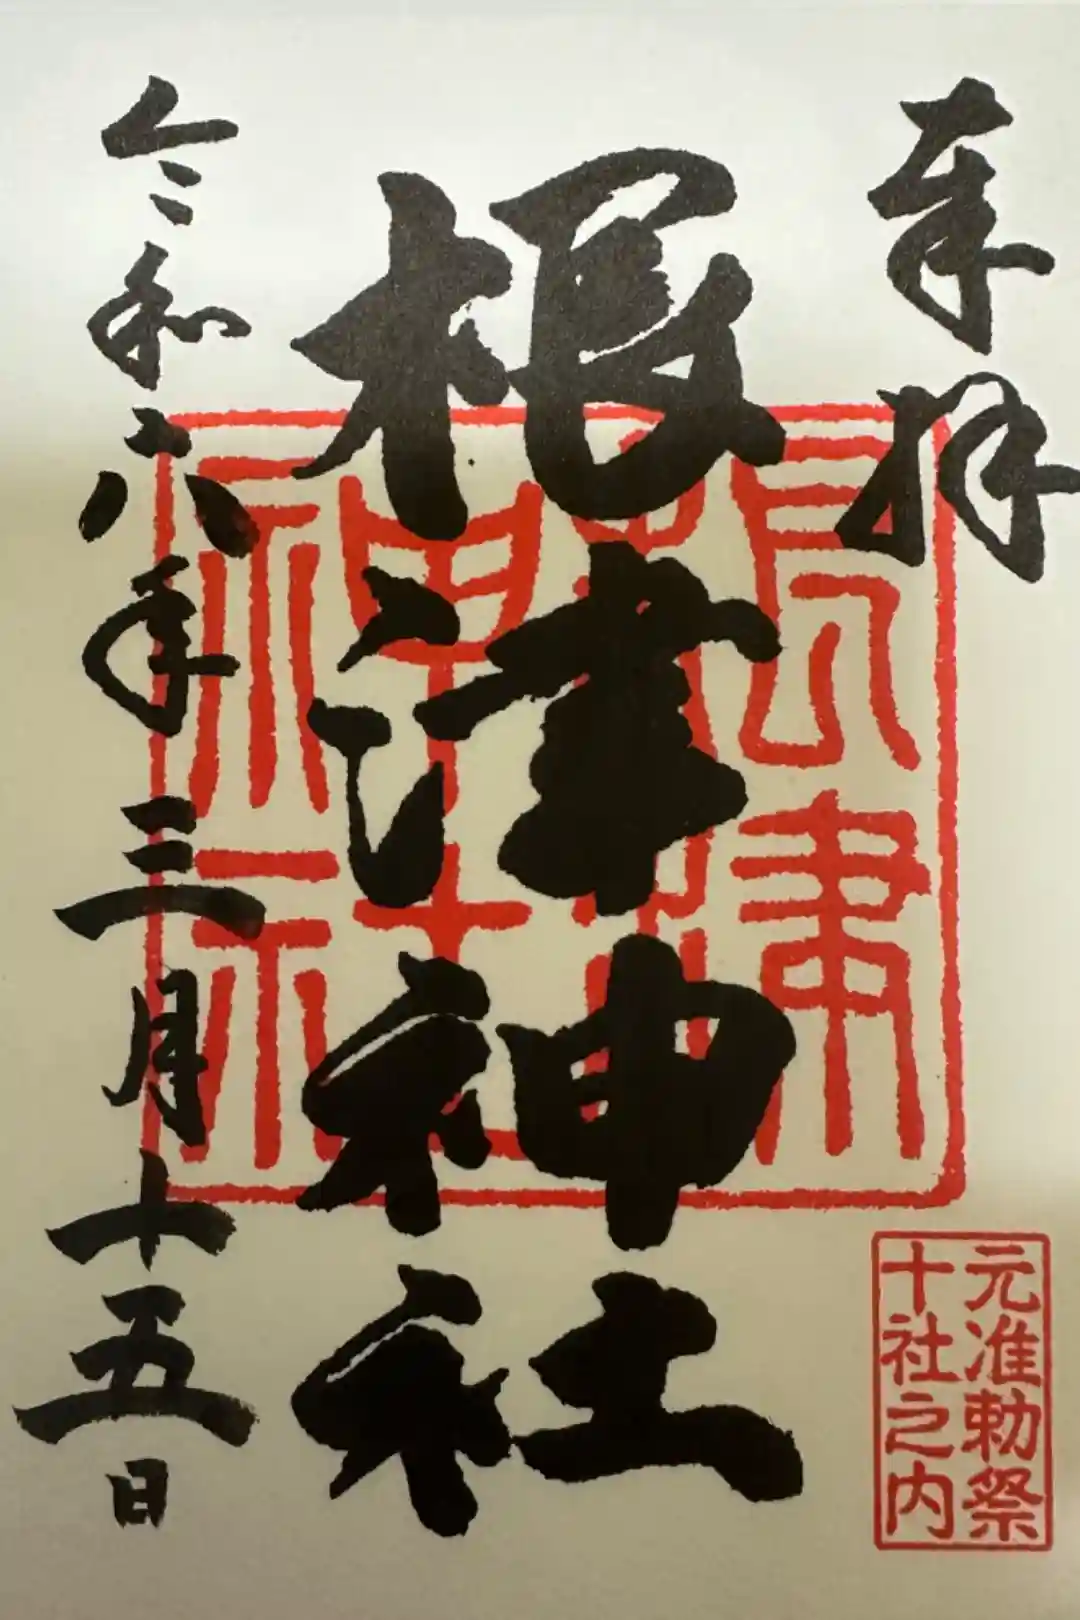 奉拝
根津神社
令和六年三月十五日
根津
神社
元准勅祭
十社之内